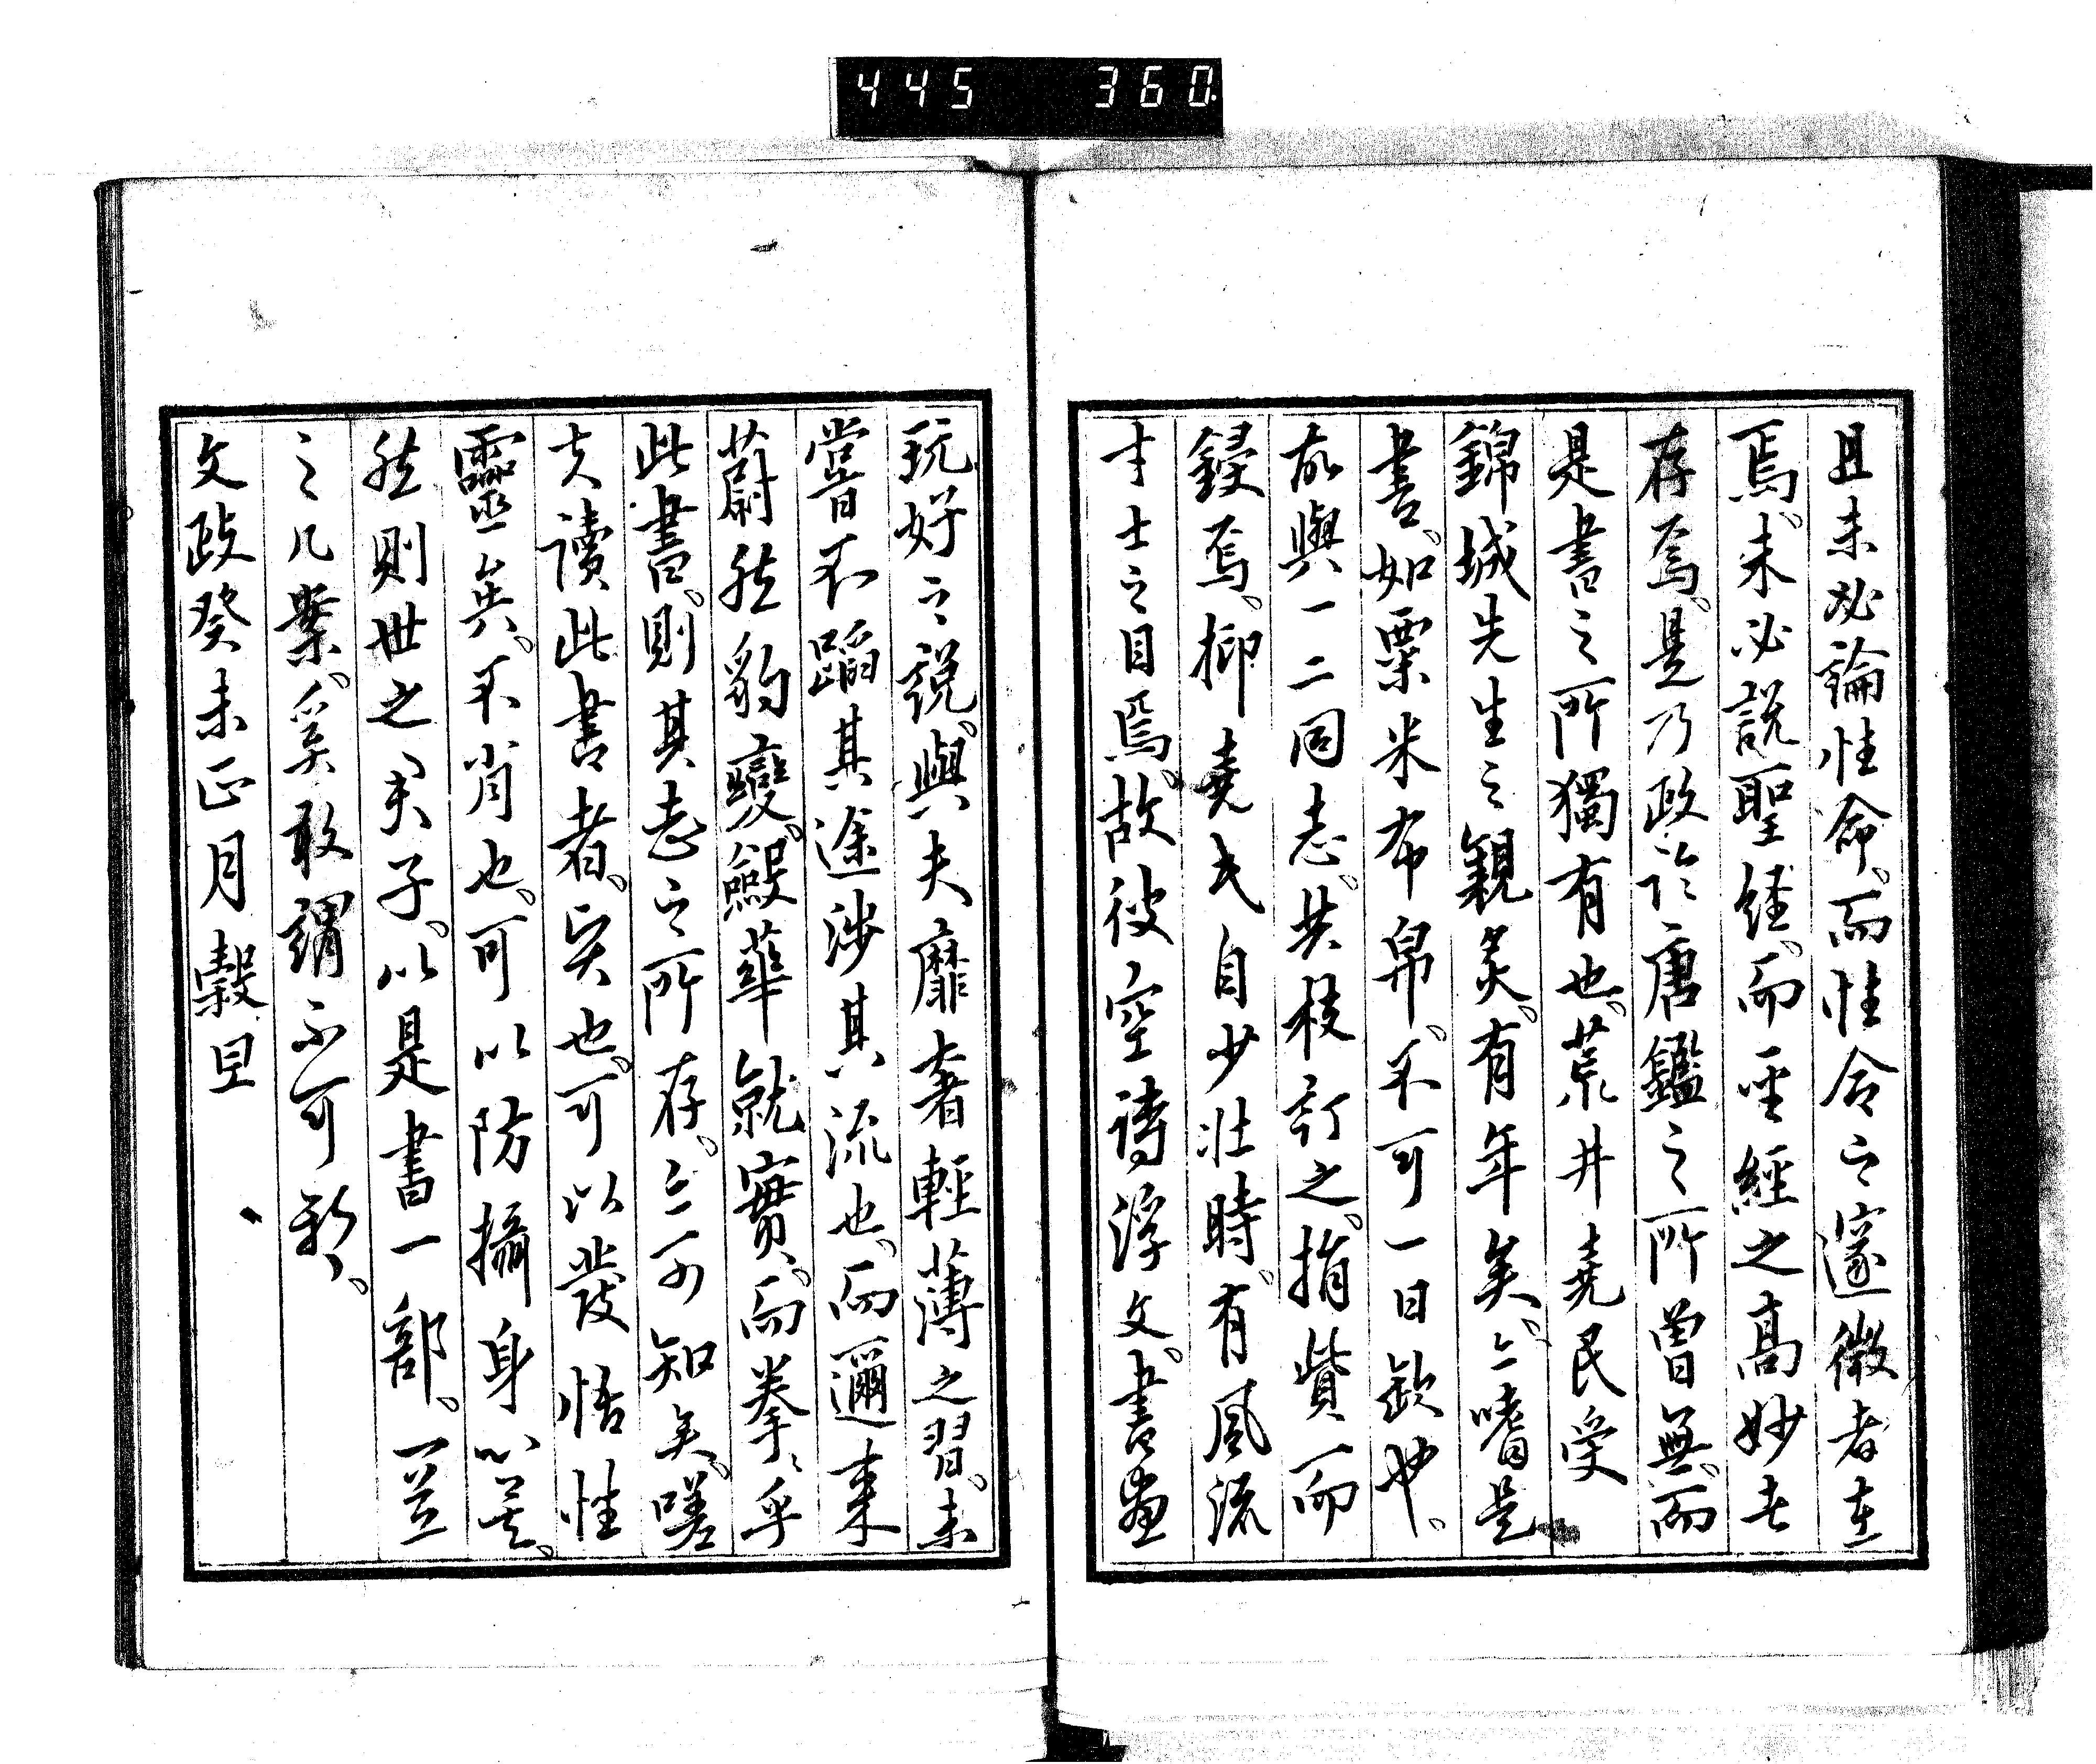 445 360
且未必論性命、而性命之邃微者在
焉、未必説聖経、而聖經之高妙者
存焉、是乃政論唐鑑之所曽無、而
是書之所獨有也、荒井堯民受
錦城先生之親炙、有年矣、亦嗜是
書、如粟米布帛、不可一日缺也、
故與一二同志、共校訂之、捐貲而
鋟焉、抑堯民自少壮時、有風流
才士之目焉、故彼空詩浮文、書畫
玩好之説、與夫靡奢輕薄之習、未
嘗不蹈其途渉其流也、而邇来
蔚然豹變、斂華就實、而拳〻乎
此書、則其志之所存、亦可知矣、嗟
夫讀此書者、賢也、可以發悟性
靈矣、不肖也、可以防攝身心矣、
然則世之君子、以是書一部、一置
之几案、奚敢謂不可哉、
文政癸未正月穀旦